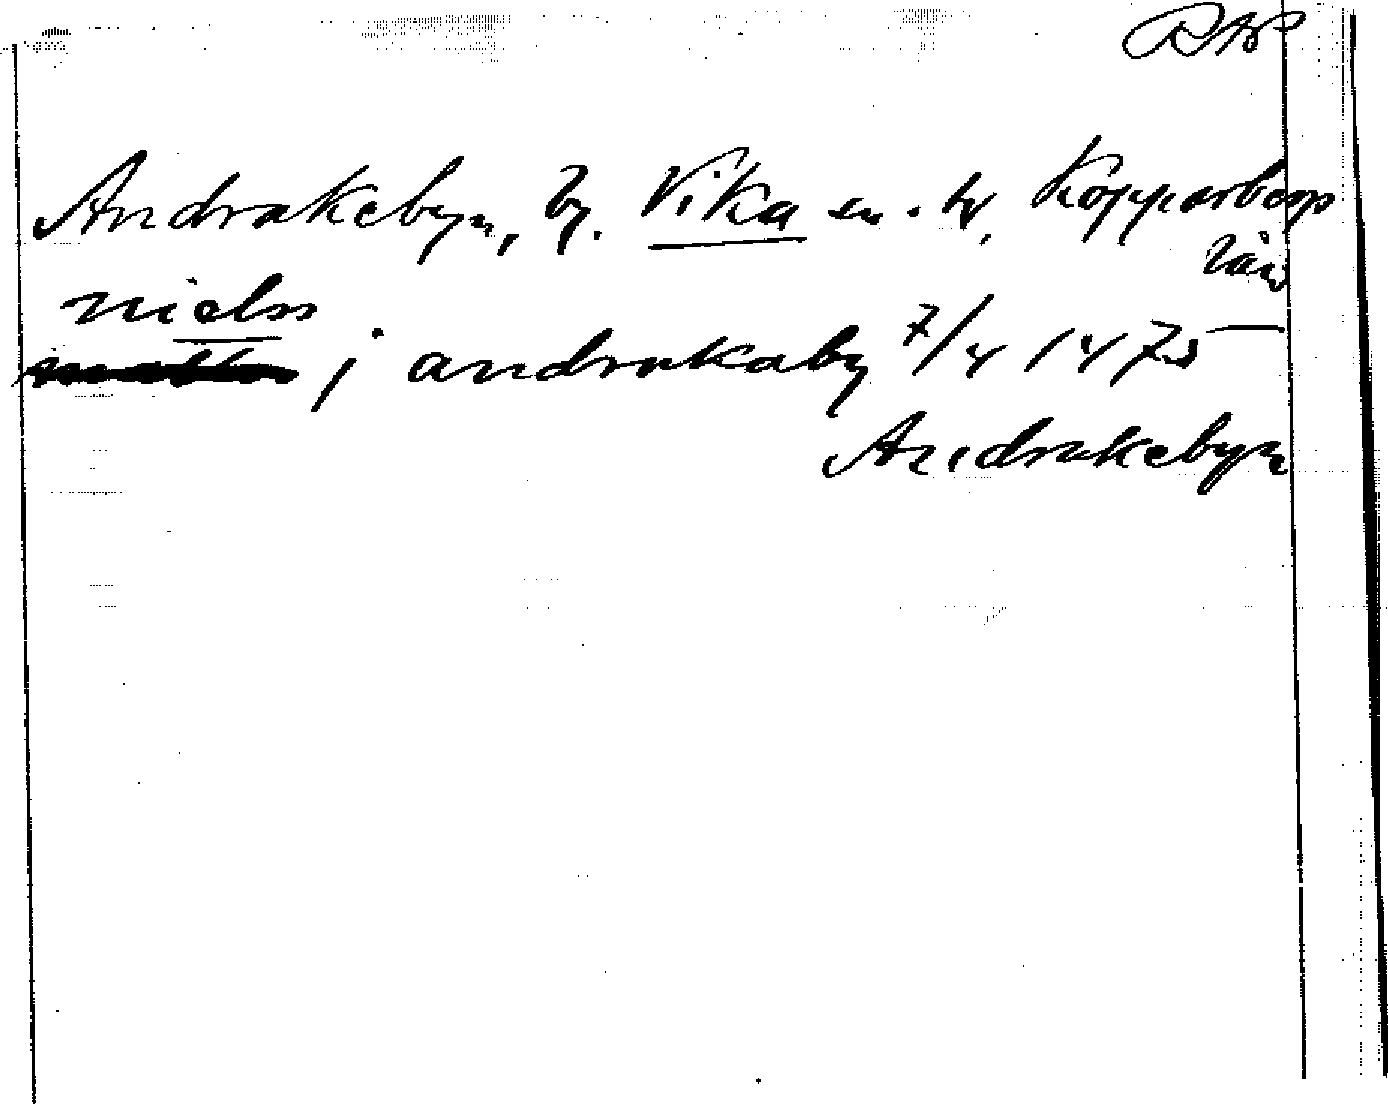 RAP
Andrakebyn, by. Vika sn. o. h. Kopparbergs
län
nielss
j andrakaby 7/4 1475
Andrakebyn